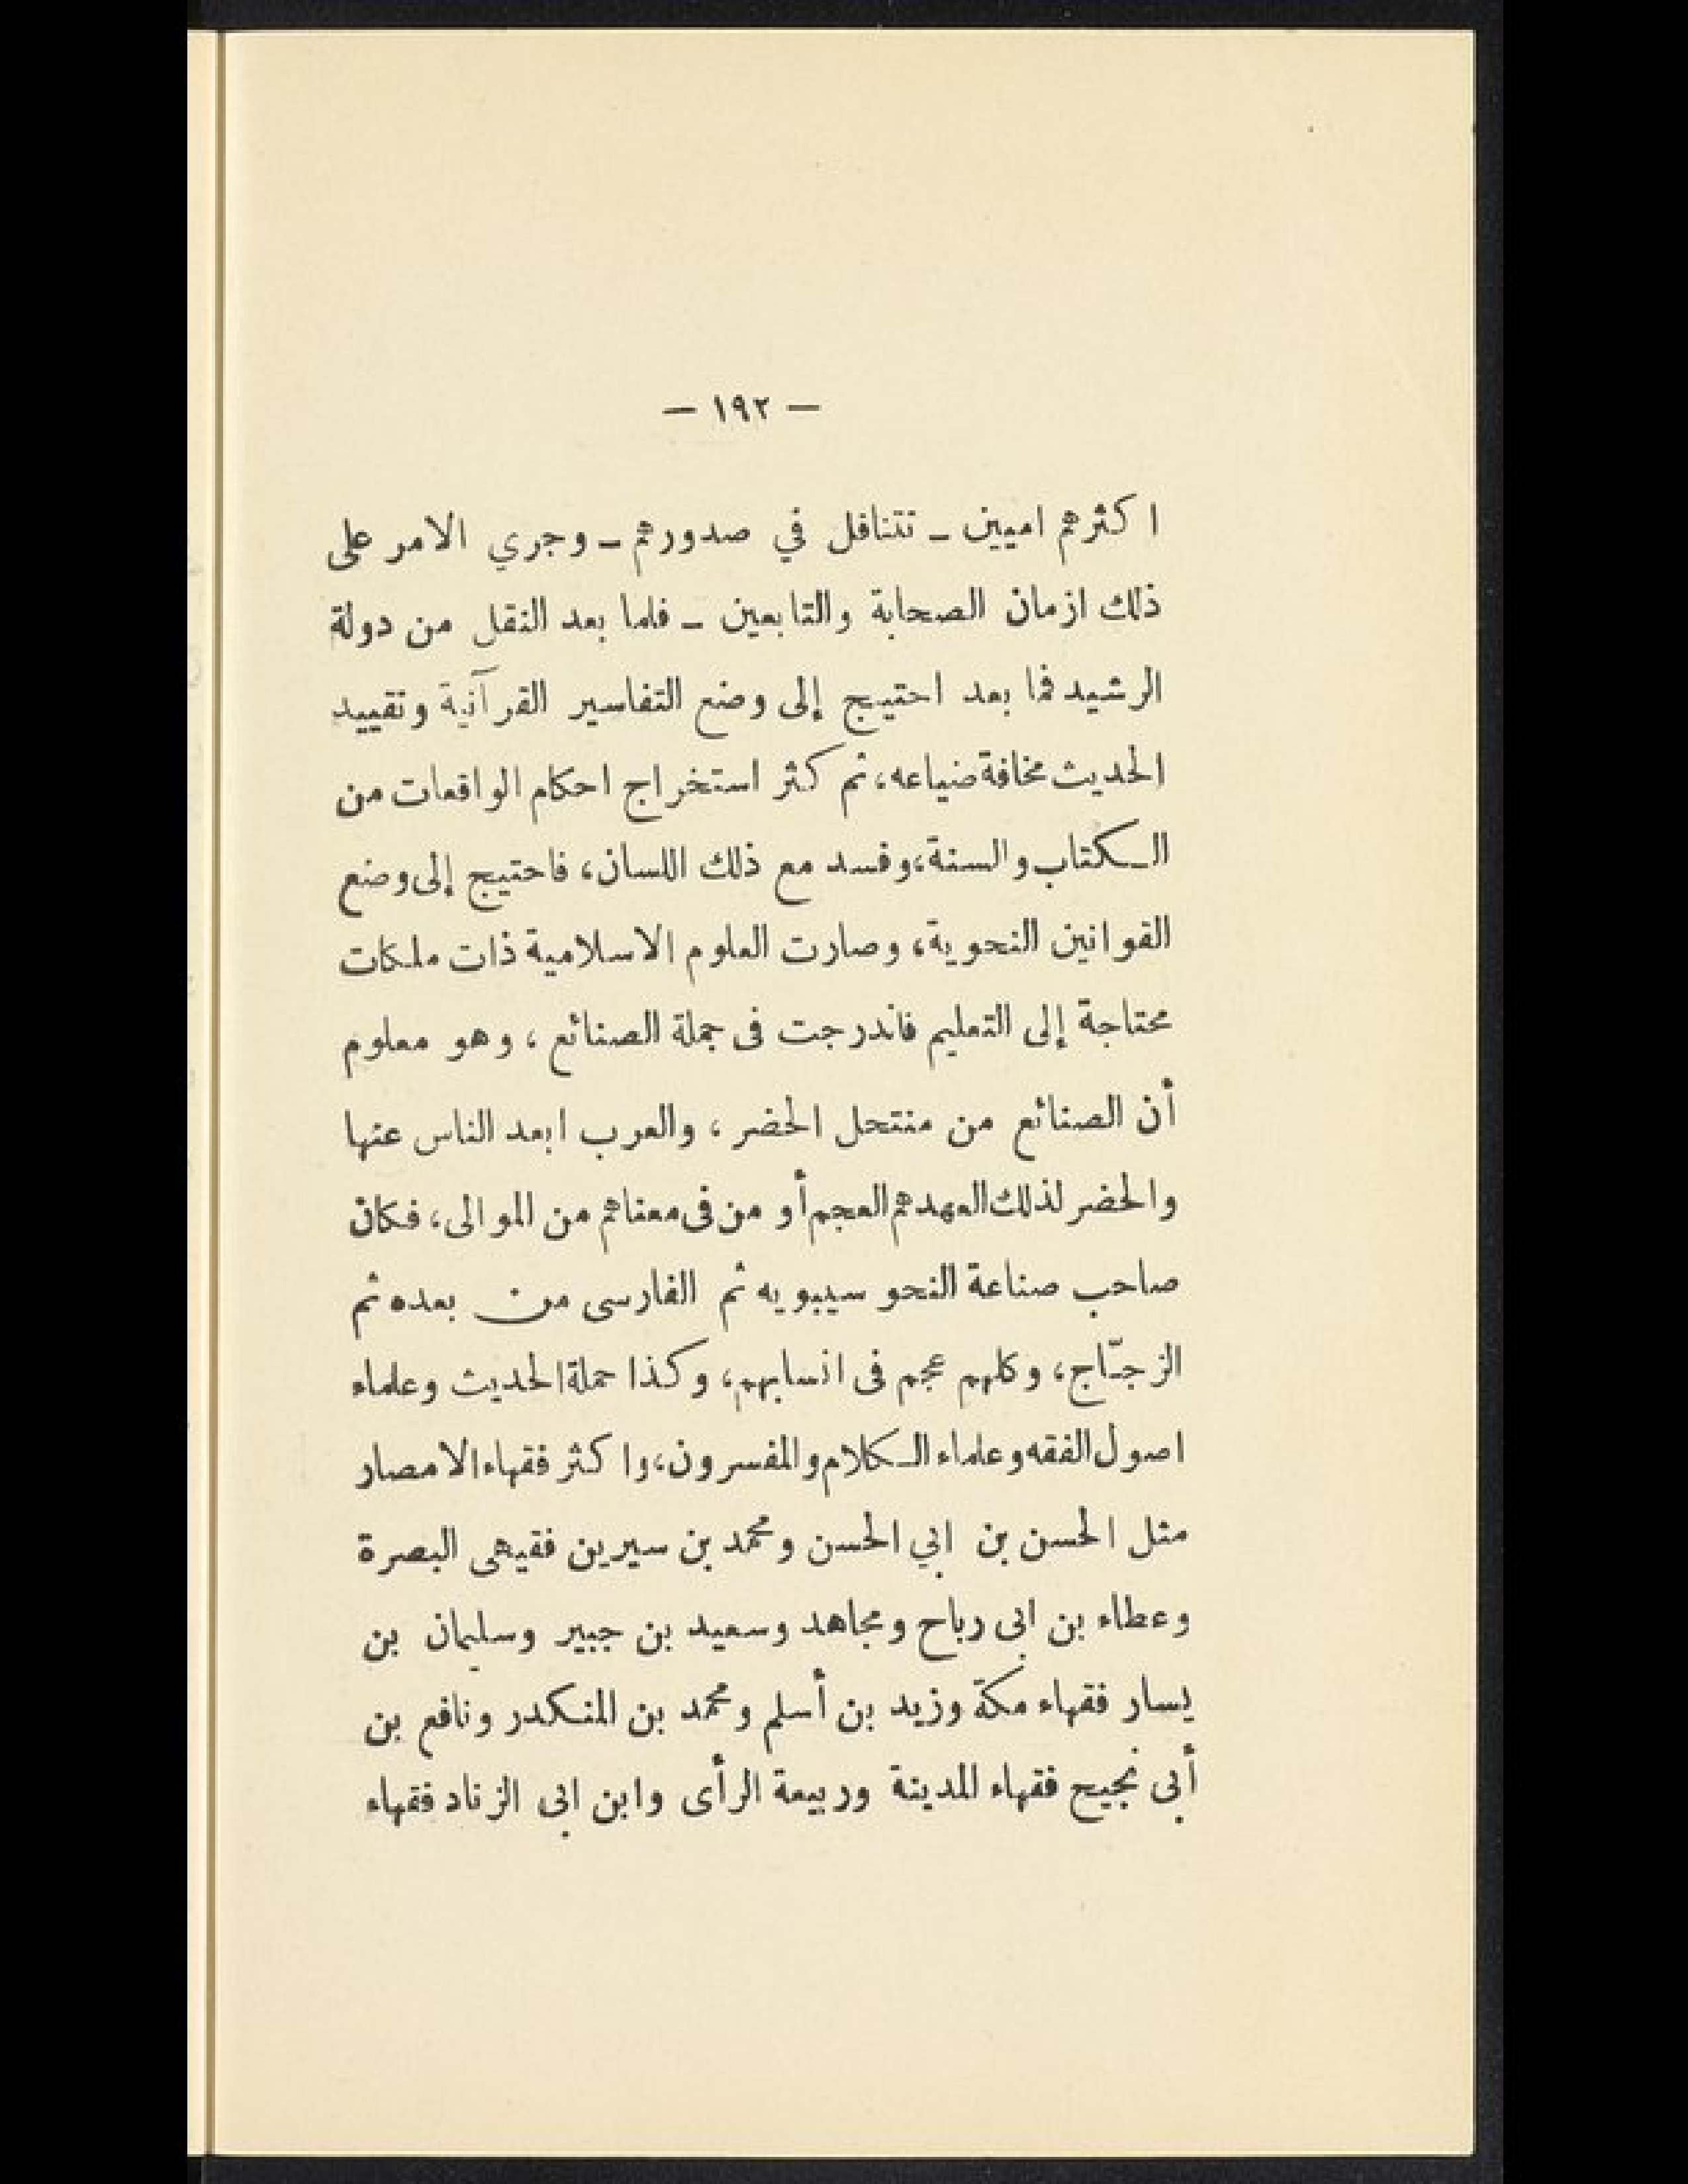 — ١٩٢ —
اكثرهم اميين – تتنافل في صدورهم – وجري الامر على
ذلك ازمان الصحابة والتابعين – فلما بعد النقل من دولة
الرشيد فما بعد احتيج إلى وضع التفاسير القرآنية وتقييد
الحديث مخافة ضياعه، ثم كثر استخراج احكام الواقعات من
الكتاب والسنة، وفسد مع ذلك اللسان، فاحتيج إلى وضع
القوانين النحوية، وصارت العلوم الاسلامية ذات ملكات
محتاجة إلى التعليم فاندرجت فى جملة الصنائع، وهو معلوم
أن الصنائع من منتحل الحضر، والعرب ابعد الناس عنها
والحضر لذلك العهد هم العجم أو من فى معناهم من الموالى، فكان
صاحب صناعة النحو سيبويه ثم الفارسى من بعده ثم
الزجّاج، وكلهم عجم فى انسابهم، وكذا حملة الحديث وعلماء
اصول الفقه وعلماء الكلام والمفسرون، واكثر فقهاء الامصار
مثل الحسن بن ابي الحسن ومحمد بن سيرين فقيهى البصرة
وعطاء بن ابى رباح ومجاهد وسعيد بن جبير وسليمان بن
يسار فقهاء مكة وزيد بن أسلم ومحمد بن المنكدر ونافع بن
أبى نجيح فقهاء المدينة وربيعة الرأى وابن ابى الزناد فقهاء